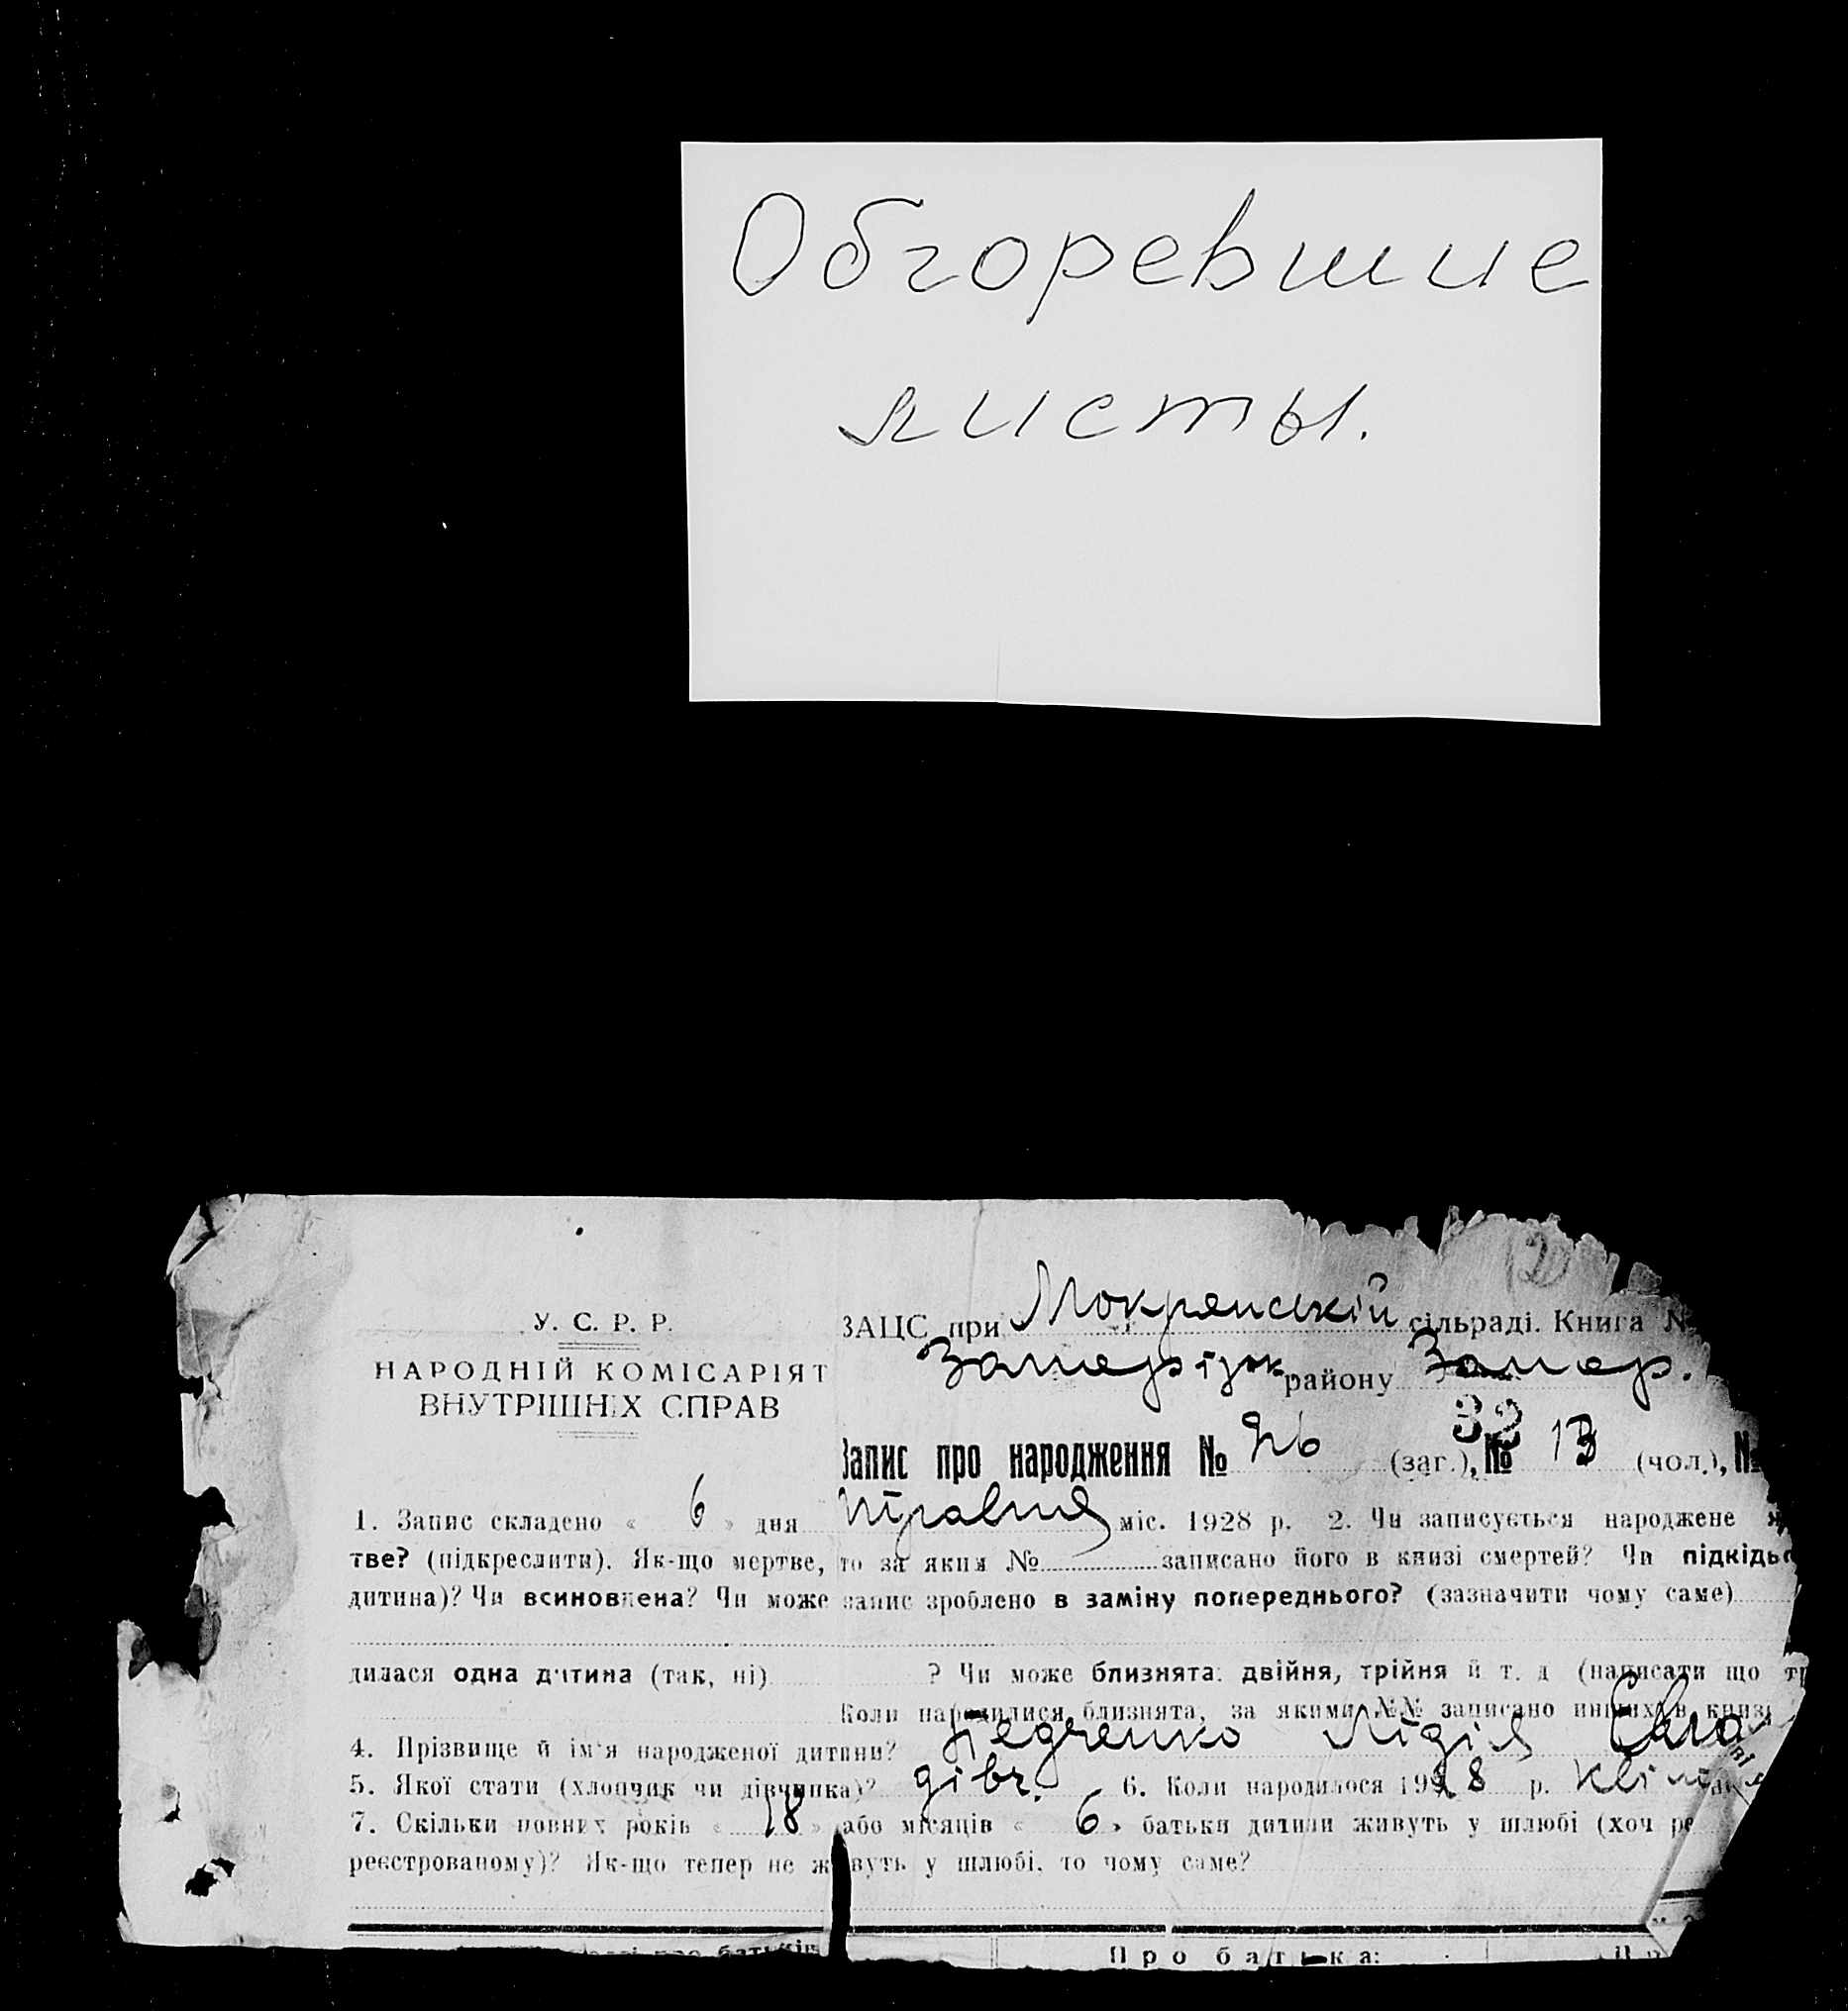 Обгоревшие
листы.
У. С. Р. Р.
НАРОДНІЙ КОМІСАРІЯТ
ВНУТРІШНІХ СПРАВ
ЗАЦС при Мокрянській сільраді. Книга №
району Запор.
32
Запис про народження № (заг.), № 13 (чол.), №
1. Запис складено « 6 » дня травня міс. 1928 р. 2. Чи записується народжене
тве? (підкреслити). Як-що мертве, то за яким № записано його в книзі смертей? Чи підкідьо
дитина)? Чи всиновлена? Чи може запис зроблено в заміну попереднього? (зазначити чому саме)
дилася одна дитина (так, ні) ? Чи може близнята: двійня, трійня й т. д (написати що тр
Коли народилися близнята, за якими №№ записано инших в книзі
4. Прізвище й ім'я народженої дитини? Лідія
5. Якої статі (хлопчик чи дівчинка)? дівч. 6. Коли народилося 1928 р.
7. Скільки повних років « 18 » або місяців « 6 » батьки дитини живуть у шлюбі (хоч ре
реєстрованому)? Як-що тепер не живуть у шлюбі, то чому саме?
Про батька: